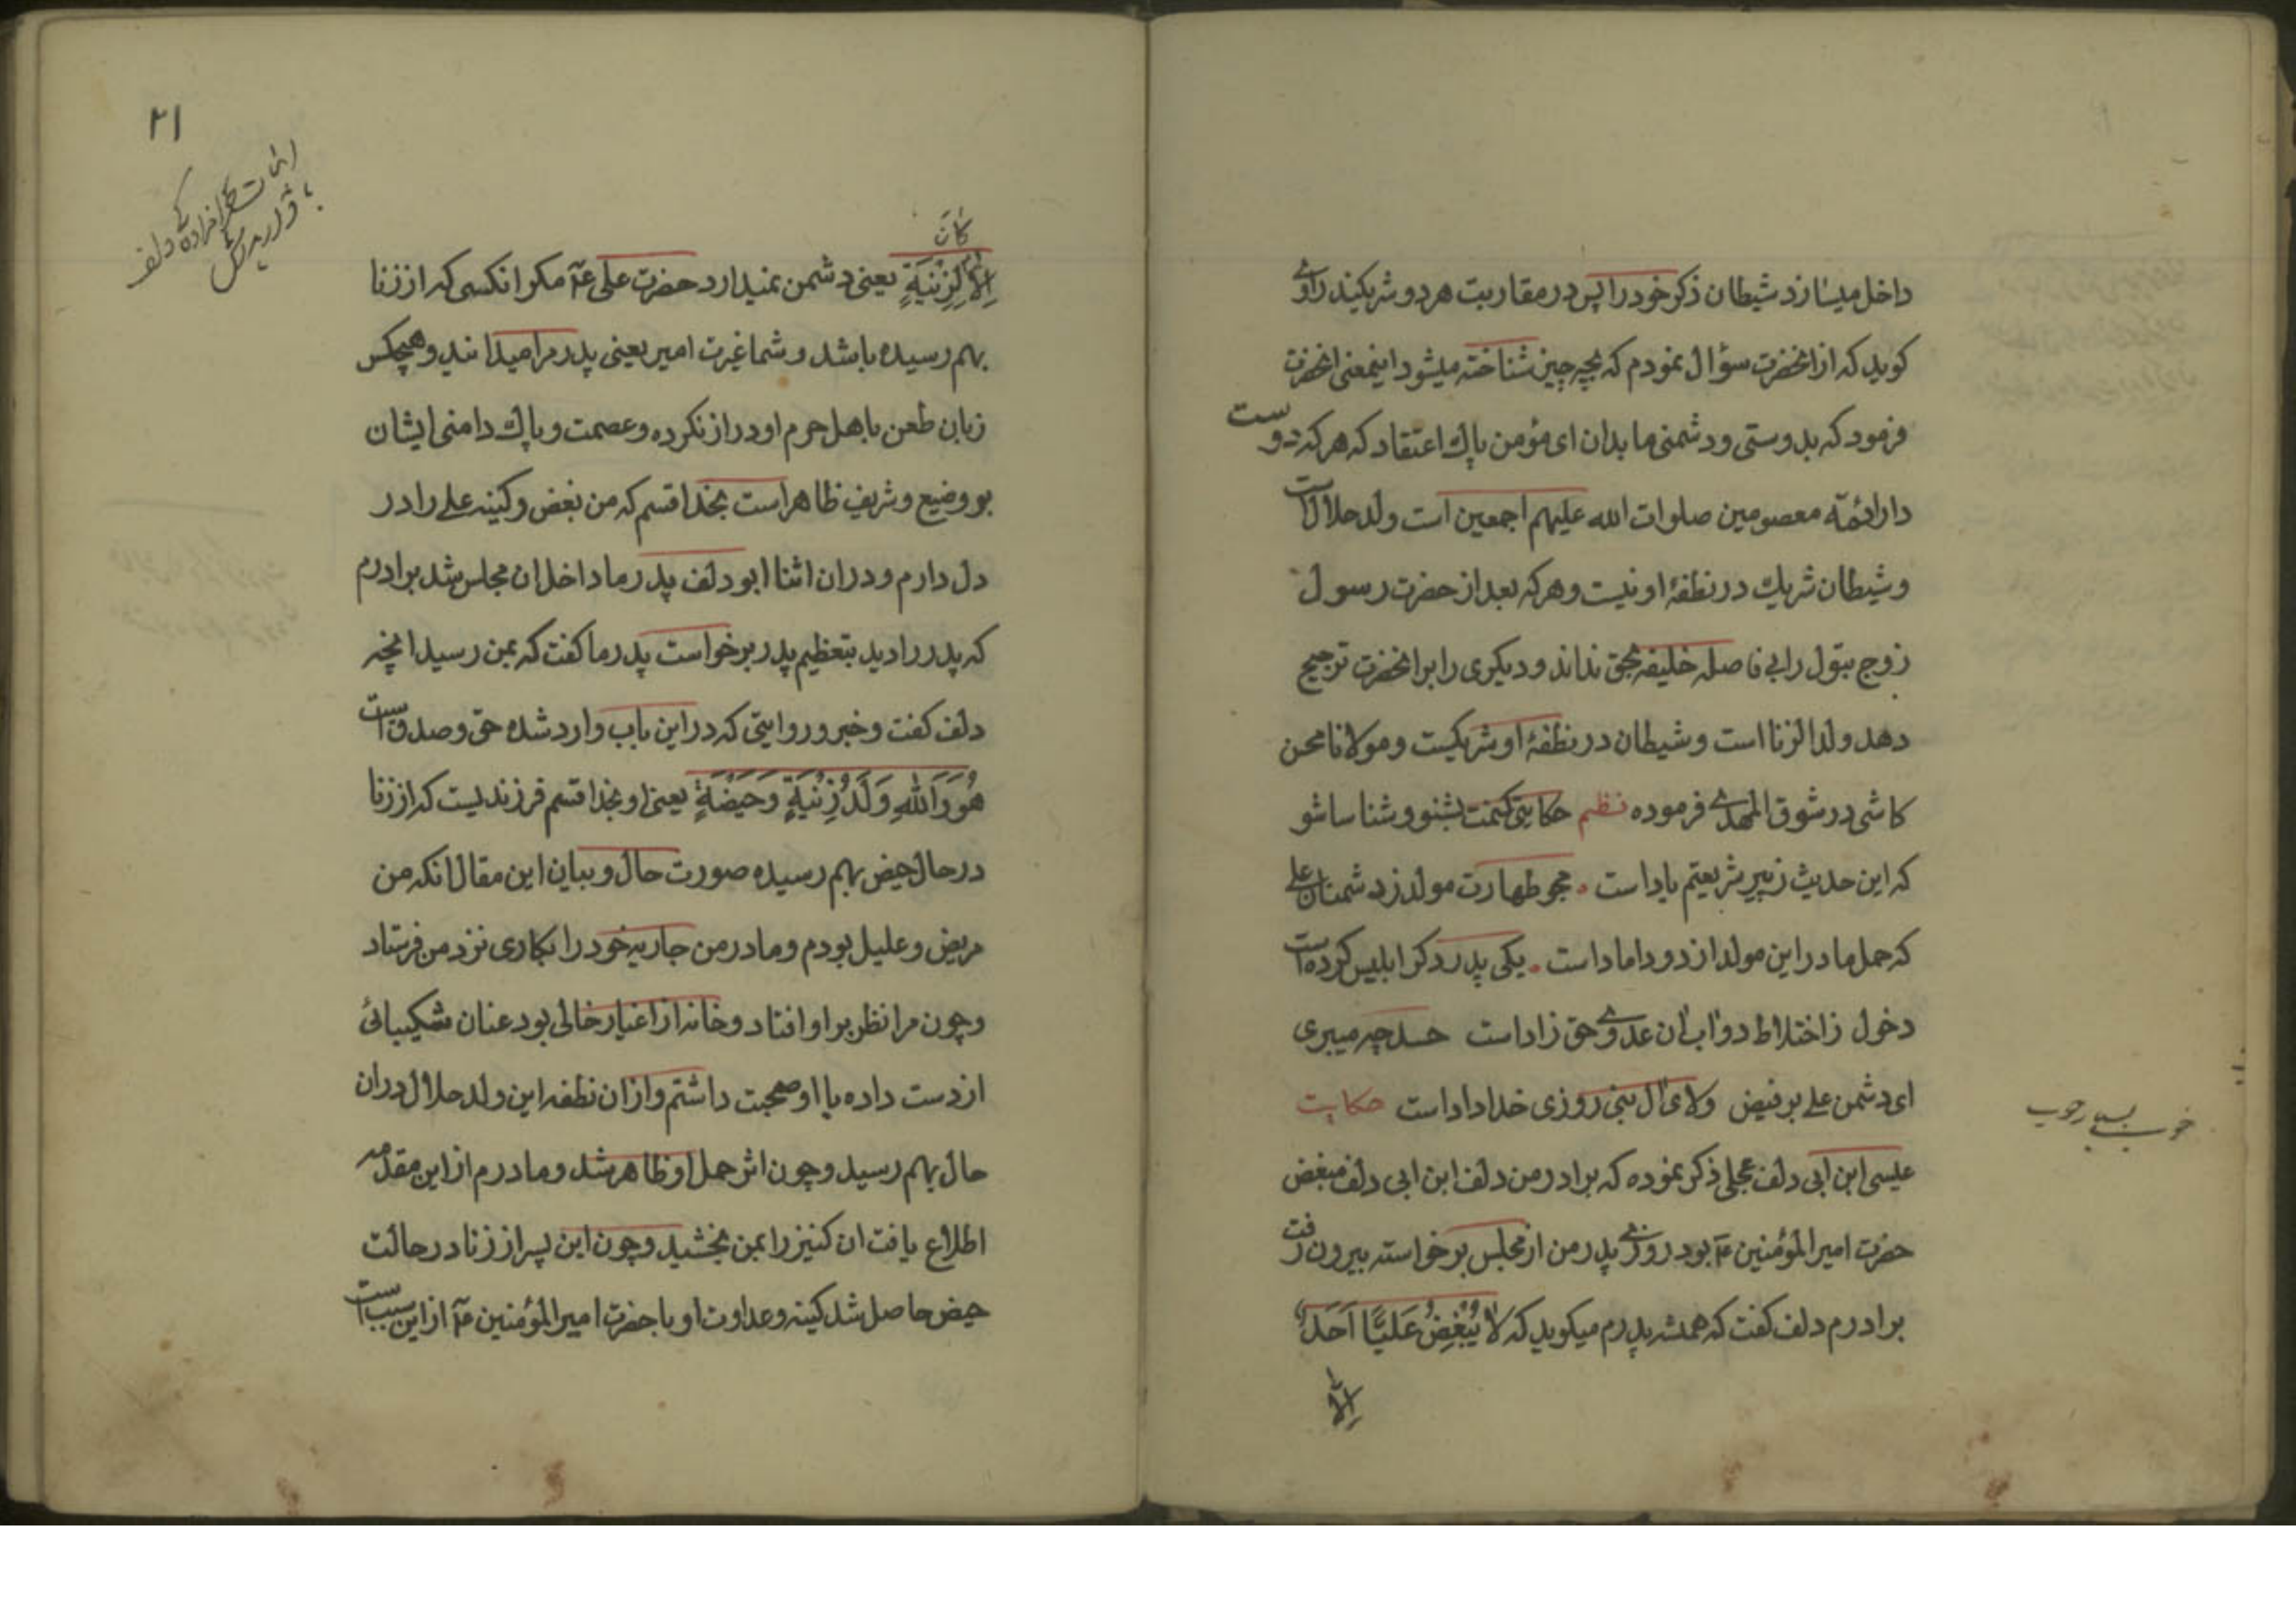 داخل میسازد شیطان ذکر خود را پس در مقاربت هر دو شریکیند راوی
کوید که از انحضرت سؤال نمودم که بچه چیز شناخته میشود اینمعنی انحضرت
فرمود که بدوستی و دشمنی ما بدان ای مؤمن پاك اعتقاد که هر که دوست
دار ائمّه معصومین صلوات الله علیهم اجمعین است ولد حلال است
و شیطان شریك در نطفهٔ او نیست و هر که بعد از حضرت رسول
زوج بتول را بی فاصله خلیفه بحق نداند و دیکری را بر انحضرت ترجیح
دهد ولد الزنا است و شیطان در نطفهٔ او شریکست و مولانا محسن
کاشی در شوق المهدی فرموده نظم حکایتی کنمت بشنو و شناسا شو
که این حدیث ز پیر شریعتم یاد است . مجو طهارت مولد ز دشمنان علی
که حمل مادر این مولد از دو داماد است . یکی پدر دکر ابلیس کرده است
دخول ز اختلاط دو آب آن عدوی حق زاد است حسد چه میبری
ای دشمن علی بر فیض ولای آل نبی روزی خداداد است حکایت
عیسی ابن ابی دلف عجلی ذکر نموده که برادر من دلف ابن ابی دلف مبغض
حضرت امیر المؤمنین عم بود روزی پدر من از مجلس برخواسته بیرون رفت
برادرم دلف کفت که همیشه پدرم میکوید که لَا يُبْغِضُ عَلَيًّا اَحَدٌ
اِلّا
خوب بسیار خوب
۲۱
کان
اِلَّا لِزِنْيَةٍ یعنی دشمن نمیدارد حضرت علی عم مکر انکسی که از زنا
بهم رسیده باشد و شما غیرت امیر یعنی پدرم را میدانید و هیچکس
زبان طعن باهل حرم او دراز نکرده و عصمت و پاك دامنی ایشان
بر وضیع و شریف ظاهر است بخدا قسم که من بغض و کینه علی را در
دل دارم و در ان اثنا ابو دلف پدر ما داخل ان مجلس شد برادرم
که پدر را دید بتعظیم پدر برخواست پدر ما کفت که بمن رسید انچه
دلف کفت و خبر و روایتی که در این باب وارد شده حق و صدق است
هُوَ وَاللهِ وَلَدُ زِنْيَةٍ وَحَيْضَةٍ یعنی او بخدا قسم فرزندیست که از زنا
در حال حیض بهم رسیده صورت حال و بیان این مقال انکه من
مریض و علیل بودم و مادر من جاریه خود را بکاری نزد من فرستاد
و چون مرا نظر بر او افتاد و خانه از اغیار خالی بود عنان شکیبائی
از دست داده با او صحبت داشتم و از ان نطفه این ولد حلال در ان
حال بهم رسید و چون اثر حمل او ظاهر شد و مادرم از این مقدمه
اطلاع یافت ان کنیز را بمن بخشید و چون این پسر از زنا در حالت
حیض حاصل شد کینه و عداوت او با حضرت امیر المؤمنین عم از این سبب است